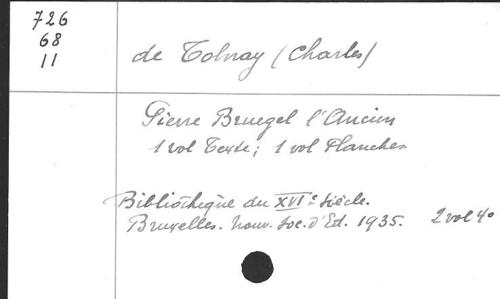 726
68
11
de Tolnay (Charles)
Pierre Bruegel l'Ancien
1 vol Texte; 1 vol Planches
Bibliothèque du XVIe Siècle.
Bruxelles. Nouv. Soc. d'Ed. 1935. 2 vol 4o